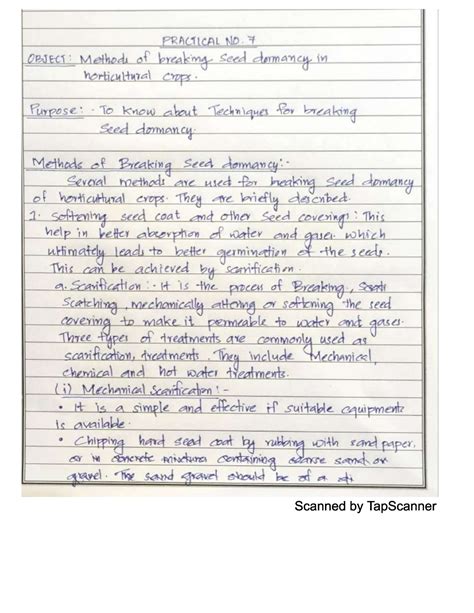 PRACTICAL NO. 7
OBJECT: Methods of breaking seed dormancy in
horticultural crops.
Purpose: - To know about Techniques for breaking
Seed dormancy.
Methods of Breaking Seed dormancy:-
Several methods are used for breaking seed dormancy
of horticultural crops. They are briefly described.
1. Softening seed coat and other seed coverings: This
help in better absorption of water and gases which
ultimately leads to better germination of the seeds.
This can be achieved by scarification.
a. Scarification:- It is the process of Breaking,
Scatching, mechanically altering or softening the seed
covering to make it permeable to water and gases.
Three types of treatments are commonly used as
scarification, treatments. They include Mechanical,
chemical and hot water treatments.
(i) Mechanical Scarification:-
• It is a simple and effective if suitable equipments
is available.
• Chipping hard seed coat by rubbing with sand paper,
or concrete containing coarse sand or
gravel. The sand gravel should be of a
Scanned by TapScanner